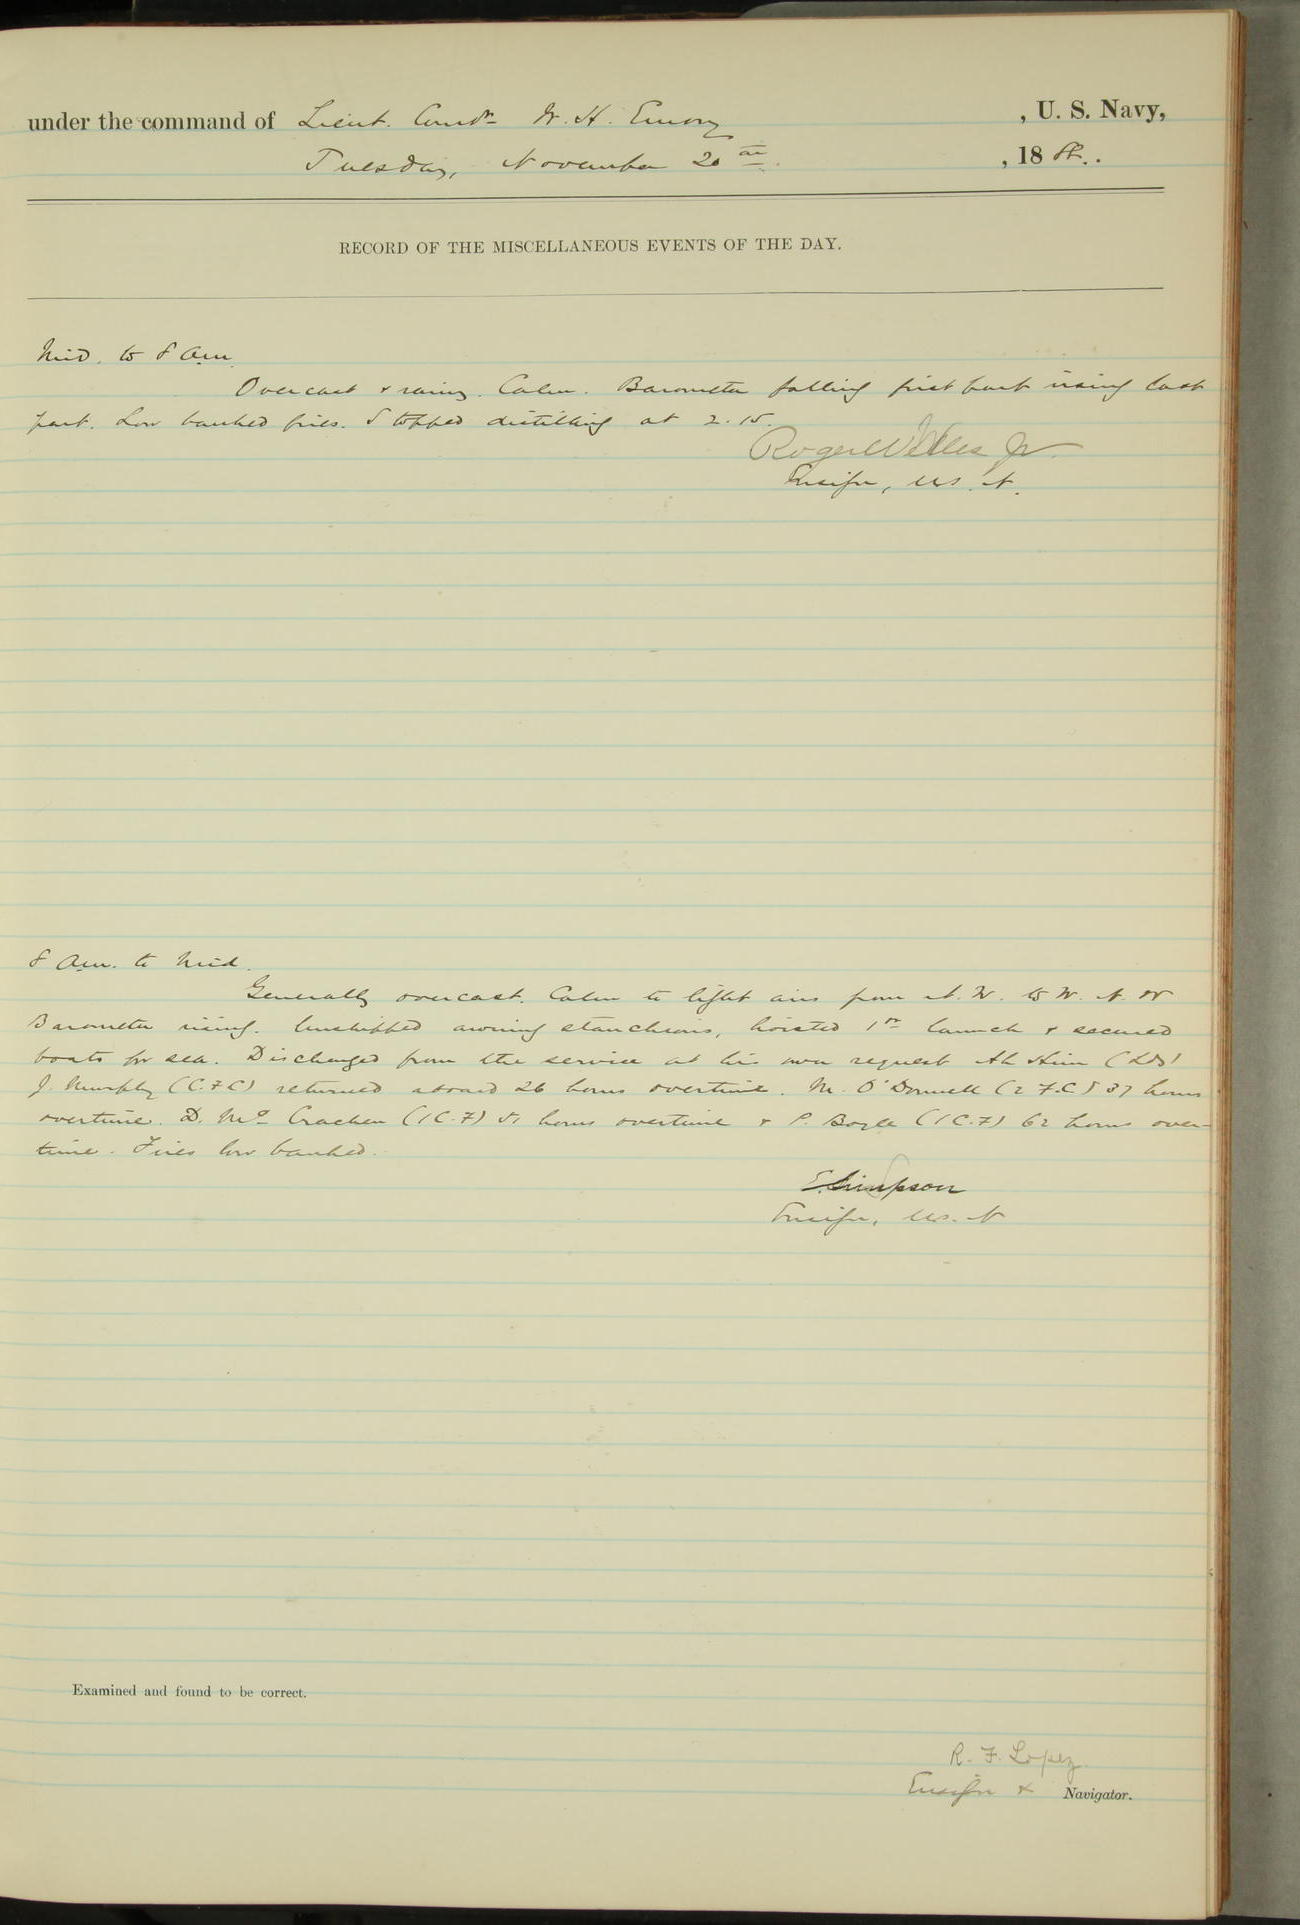 under the command of Lieut. Comdr W. H. Emory, U. S. Navy,
Tuesday, November 20th, 1888.
RECORD OF THE MISCELLANEOUS EVENTS OF THE DAY.
Mid. to 8 Am.
Overcast & rainy. Calm. Barometer falling first part rising last
part. Low banked fires. Stopped distilling at 2.15.
Roger Welles Jr.
Ensign, U.S.N.
8 Am. to Mid.
Generally overcast. Calm to light airs from N.W. to W.N.W
Barometer rising. Unshipped awning stanchions, hoisted 1st launch & secured
boats for sea. Discharged from the service at his own request Ah Him
J. Murphy (C.F.C) returned aboard 26 hours overtime. M. O'Donnell (2 F.C) 37 hours
overtime. D. Mc Cracken (1 C.F) 51 hours overtime & P. Boyle (1 C.F) 62 hours over-
time. Fires low banked.
E. Simpson
Ensign, U.S.N
Examined and found to be correct.
R. F. Lopez
Ensign & Navigator.